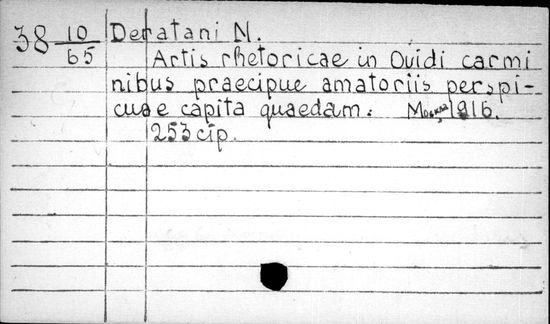 38 10/65 Deratani N.
Artis rhetoricae in Ovidi carmi
nibus praecipue amatoriis perspi-
cuae capita quaedam. Москва, 1916.
253 стр.